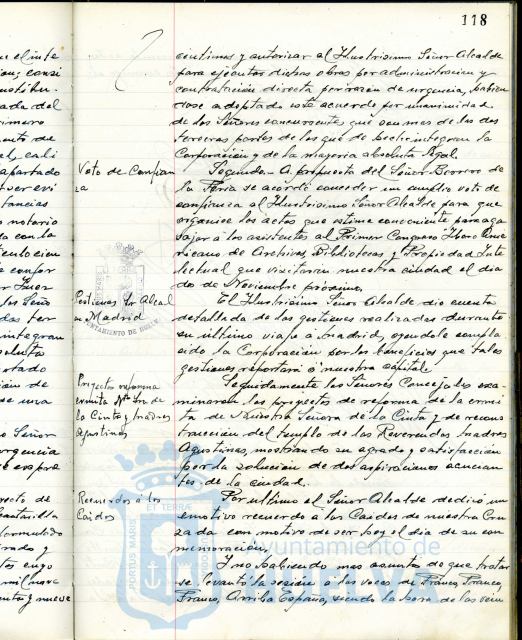 118
céntimos y autorizar al Ilustrísimo Señor Alcalde
para ejecutar dichas obras por administración y
contratación directa por razón de urgencia, habien
dose adoptado este acuerdo por unanimidad
de los Señores concurrentes que son mas de las dos
terceras partes de los que de hecho integran la
Corporación y de la mayoria absoluta legal.
Voto de Confian
za
Segundo.- A propuesta del Señor Borrero de
la Feria se acordó conceder un amplio voto de
confianza al Ilustrísimo Señor Alcalde para que
organice los actos que estime conveniente para aga
sajar á los asistentes al Primer Congreso Ibero Ame
ricano de Archivos, Bibliotecas y Propiedad Inte
lectual que visitarán nuestra ciudad el dia
de Noviembre próximo.
Gestiones Sr. Alcal
Madrid
El Ilustrísimo Señor Alcalde dió cuenta
detallada de las gestiones realizadas durante
su último viaje á Madrid, oyendole compla
cida la Corporación por los beneficios que tales
gestiones reportará á nuestra capital.
Proyecto reforma
ermita Nª Sra de
la Cinta y Madres
Agustinas
Seguidamente los Señores Concejales exa
minaron los proyectos de reforma de la ermi
ta de Nuestra Señora de la Cinta y de recons
trucción del templo de las Reverendas Madres
Agustinas, mostrando su agrado y satisfacción
por la solución de dos aspiraciones acucian
tes de la ciudad.
Recuerdos á los
Caidos
Por último el Señor Alcalde dedicó un
emotivo recuerdo á los Caidos de nuestra Cru
zada con motivo de ser hoy el dia de su con
memoración.
Y no habiendo mas asuntos de que tratar
se levantó la sesión á las voces de Franco, Franco,
Franco, Arriba España, siendo la hora de las vein
AYUNTAMIENTO DE HUELVA
PORTUS MARIS
ET TERRAE
Ayuntamiento de
HUELVA